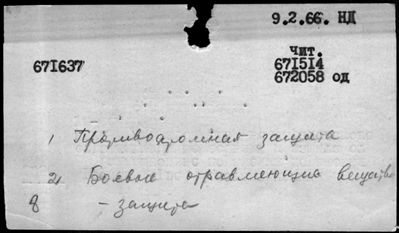 9.2.66. НД
чит.
671637
671514
672058 од
1 Противоатомная защита
2) Боевые отравляющие вещества
8 - защита